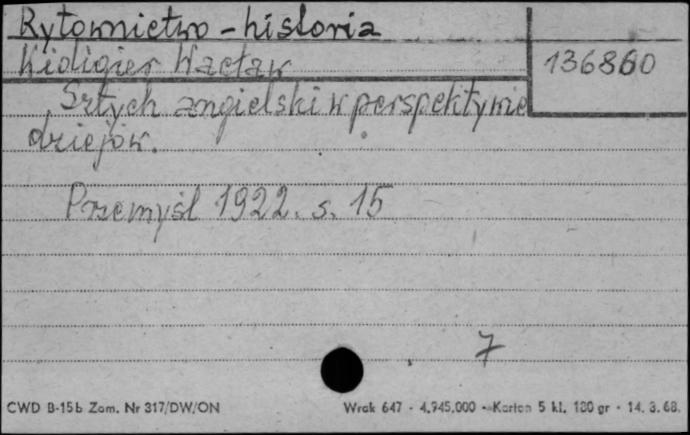 Rytownictwo - historia
Widigier Wacław
136860
Sztych angielski w perspektywie
dziejów.
Przemyśl 1922. s. 15
7
CWD B-15b Zam. Nr 317/DW/ON
Wrak 647 - 4.945.000 - Karton 5 kl. 180 gr - 14. 3. 68.